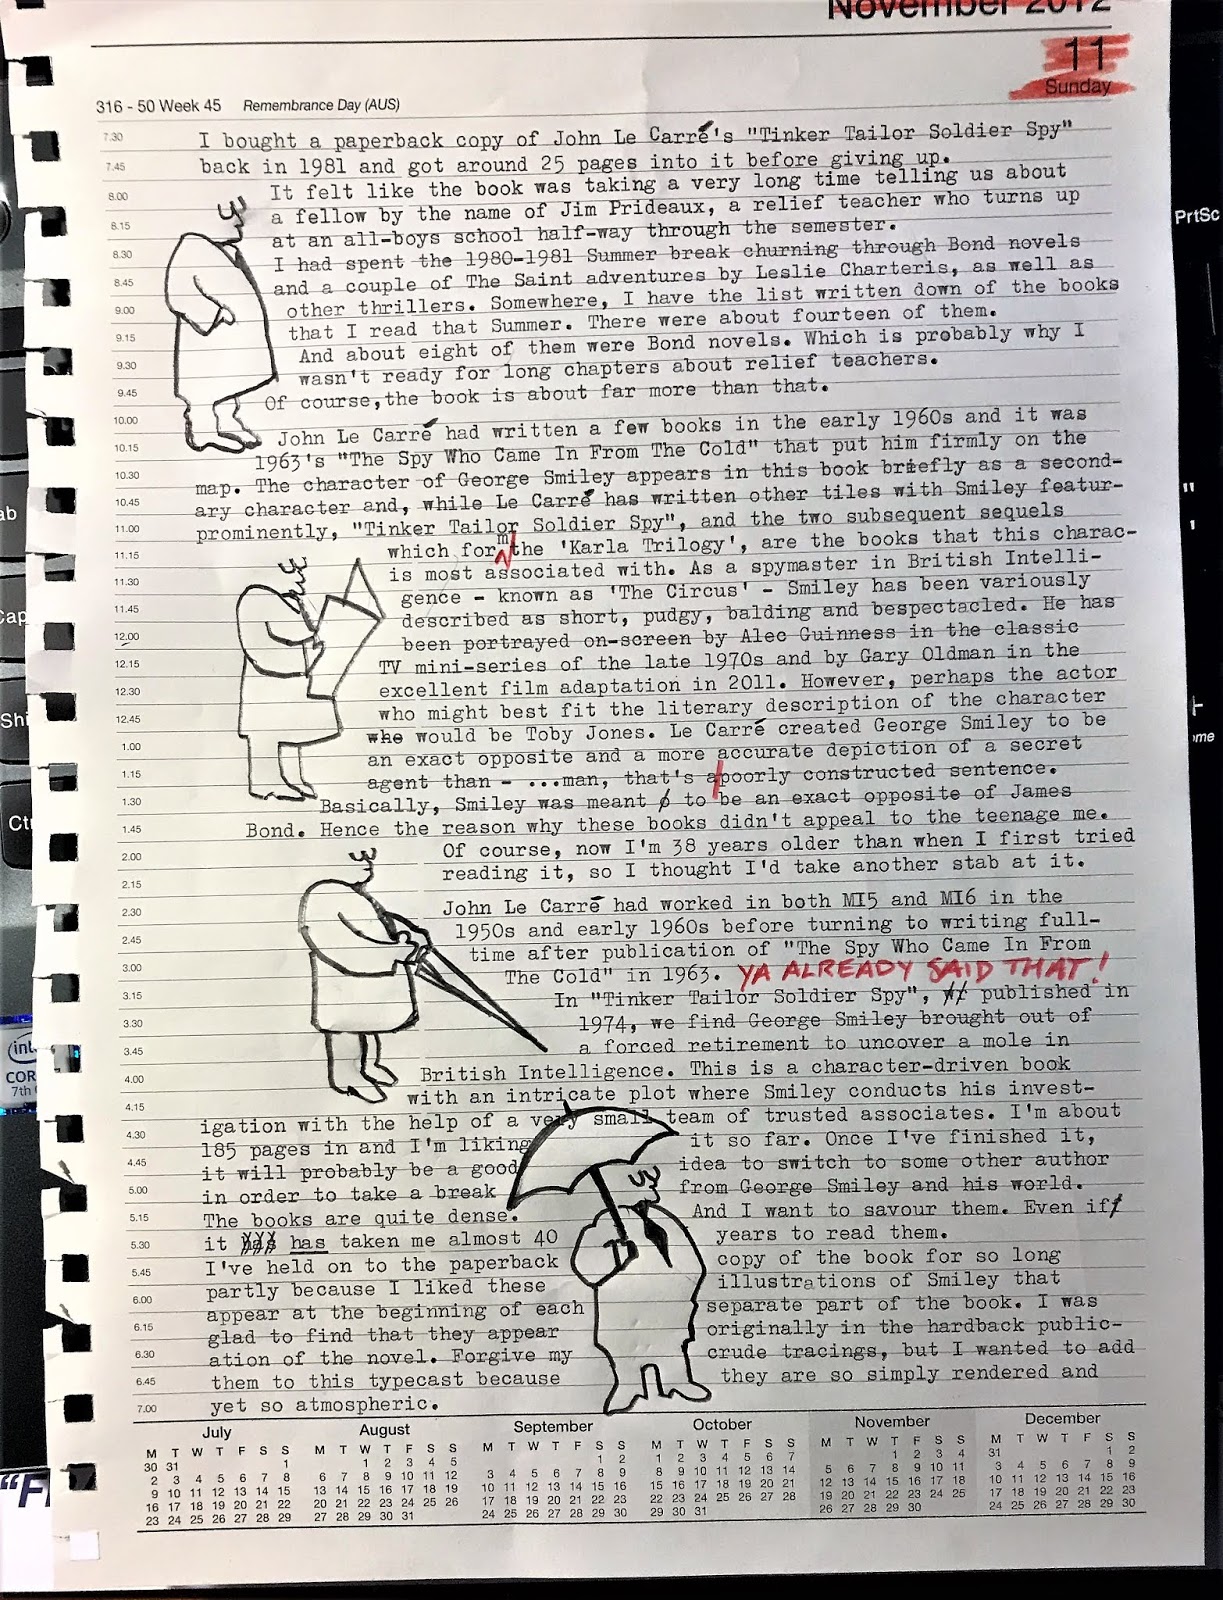 November 2012
11
Sunday
316 - 50 Week 45 Remembrance Day (AUS)
7.30 I bought a paperback copy of John Le Carré's "Tinker Tailor Soldier Spy"
7.45 back in 1981 and got around 25 pages into it before giving up.
8.00 It felt like the book was taking a very long time telling us about
a fellow by the name of Jim Prideaux, a relief teacher who turns up
8.15 at an all-boys school half-way through the semester.
8.30 I had spent the 1980-1981 Summer break churning through Bond novels
8.45 and a couple of The Saint adventures by Leslie Charteris, as well as
9.00 other thrillers. Somewhere, I have the list written down of the books
9.15 that I read that Summer. There were about fourteen of them.
And about eight of them were Bond novels. Which is probably why I
9.30 wasn't ready for long chapters about relief teachers.
9.45 Of course,the book is about far more than that.
10.00 John Le Carré had written a few books in the early 1960s and it was
10.15 1963's "The Spy Who Came In From The Cold" that put him firmly on the
10.30 map. The character of George Smiley appears in this book briefly as a second-
10.45 ary character and, while Le Carré has written other tiles with Smiley featur-
11.00 prominently, "Tinker Tailor Soldier Spy", and the two subsequent sequels
11.15 which form the 'Karla Trilogy', are the books that this charac-
is most associated with. As a spymaster in British Intelli-
11.30 gence - known as 'The Circus' - Smiley has been variously
11.45 described as short, pudgy, balding and bespectacled. He has
12.00 been portrayed on-screen by Alec Guinness in the classic
12.15 TV mini-series of the late 1970s and by Gary Oldman in the
12.30 excellent film adaptation in 2011. However, perhaps the actor
12.45 who might best fit the literary description of the character
who would be Toby Jones. Le Carré created George Smiley to be
1.00 an exact opposite and a more accurate depiction of a secret
1.15 agent than - ...man, that's a poorly constructed sentence.
1.30 Basically, Smiley was meant to be an exact opposite of James
1.45 Bond. Hence the reason why these books didn't appeal to the teenage me.
2.00 Of course, now I'm 38 years older than when I first tried
2.15 reading it, so I thought I'd take another stab at it.
2.30 John Le Carré had worked in both MI5 and MI6 in the
2.45 1950s and early 1960s before turning to writing full-
time after publication of "The Spy Who Came In From
3.00 The Cold" in 1963. YA ALREADY SAID THAT!
3.15 In "Tinker Tailor Soldier Spy", published in
3.30 1974, we find George Smiley brought out of
3.45 a forced retirement to uncover a mole in
4.00 British Intelligence. This is a character-driven book
with an intricate plot where Smiley conducts his invest-
4.15 igation with the help of a very small team of trusted associates. I'm about
4.30 185 pages in and I'm liking it so far. Once I've finished it,
4.45 it will probably be a good idea to switch to some other author
5.00 in order to take a break from George Smiley and his world.
5.15 The books are quite dense. And I want to savour them. Even if
5.30 it has has taken me almost 40 years to read them.
5.45 I've held on to the paperback copy of the book for so long
6.00 partly because I liked these illustrations of Smiley that
appear at the beginning of each separate part of the book. I was
6.15 glad to find that they appear originally in the hardback public-
6.30 ation of the novel. Forgive my crude tracings, but I wanted to add
6.45 them to this typecast because they are so simply rendered and
7.00 yet so atmospheric.
July August September October November December
M T W T F S S M T W T F S S M T W T F S S M T W T F S S M T W T F S S M T W T F S S
30 31 1 1 2 3 4 5 1 2 1 2 3 4 5 6 7 1 2 3 4 31 1 2
2 3 4 5 6 7 8 6 7 8 9 10 11 12 3 4 5 6 7 8 9 8 9 10 11 12 13 14 5 6 7 8 9 10 11 3 4 5 6 7 8 9
9 10 11 12 13 14 15 13 14 15 16 17 18 19 10 11 12 13 14 15 16 15 16 17 18 19 20 21 12 13 14 15 16 17 18 10 11 12 13 14 15 16
16 17 18 19 20 21 22 20 21 22 23 24 25 26 17 18 19 20 21 22 23 22 23 24 25 26 27 28 19 20 21 22 23 24 25 17 18 19 20 21 22 23
23 24 25 26 27 28 29 27 28 29 30 31 24 25 26 27 28 29 30 29 30 31 26 27 28 29 30 24 25 26 27 28 29 30
PrtSc
Ctr
COR
7th